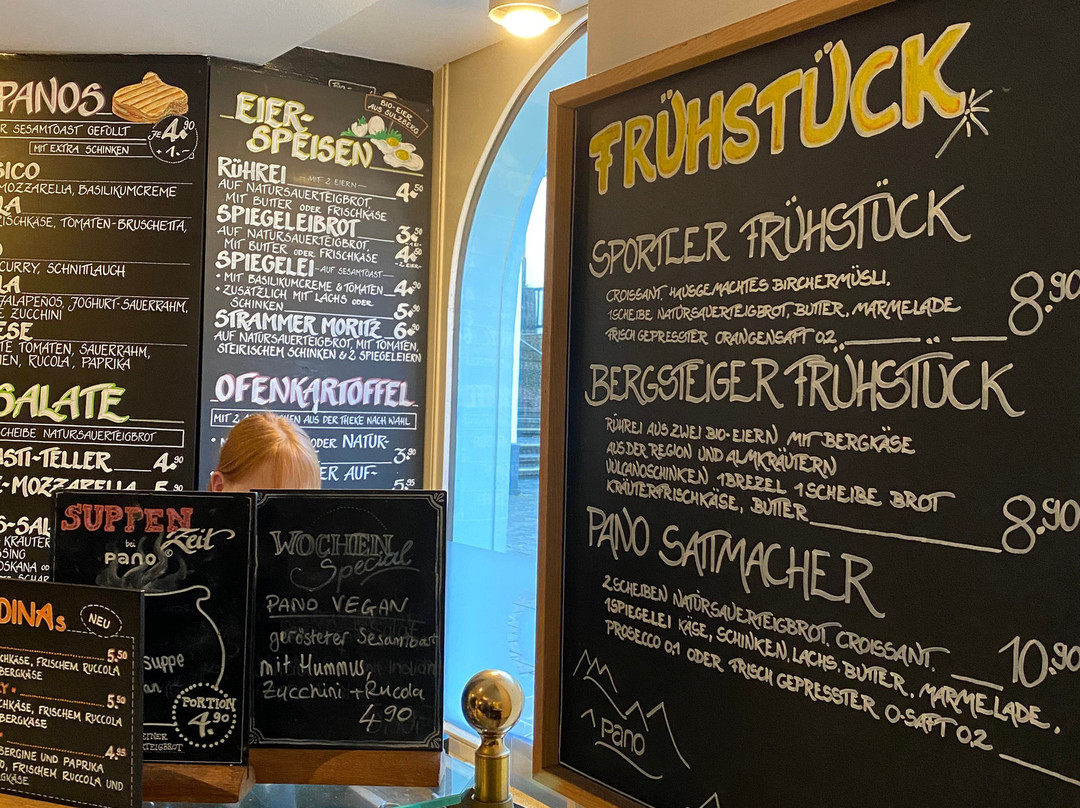 PANOS
SESAMTOAST GEFÜLLT
JE 4.90
MIT EXTRA SCHINKEN
+1.-
MOZZARELLA, BASILIKUMCREME
TOMATEN-BRUSCHETTA,
CURRY, SCHNITTLAUCH
JALAPEÑOS, JOGHURT-SAUERRAHM,
ZUCCHINI
TOMATEN, SAUERRAHM,
RUCOLA, PAPRIKA
SALATE
SCHEIBE NATURSAUERTEIGBROT
TELLER 4.90
MOZZARELLA
EIER-
SPEISEN
BIO-EIER
AUS SULZBERG
RÜHREI MIT 2 EIERN
4.50
AUF NATURSAUERTEIGBROT,
MIT BUTTER ODER FRISCHKÄSE
SPIEGELEIBROT 3.50
AUF NATURSAUERTEIGBROT,
MIT BUTTER ODER FRISCHKÄSE
SPIEGELEI AUF SESAMTOAST
• MIT BASILIKUMCREME & TOMATEN 4.90
• ZUSÄTZLICH MIT LACHS ODER
SCHINKEN 5.90
STRAMMER MORITZ 6.90
AUF NATURSAUERTEIGBROT, MIT TOMATEN,
STEIRISCHEM SCHINKEN & 2 SPIEGELEIERN
OFENKARTOFFEL
MIT 2 AUS DER THEKE NACH WAHL
ODER NATUR-
3.90
AUF-
5.95
SUPPEN
Zeit
bei
pano
suppe
PORTION
4.90
WOCHEN
Special
PANO VEGAN
gerösteter Sesamtoast
mit Hummus,
Zucchini + Rucola
4.90
DINAs
NEU
5.50
FRISCHEM RUCCOLA
BERGKÄSE
5.50
FRISCHEM RUCCOLA
BERGKÄSE
4.95
UND PAPRIKA
FRISCHEM RUCCOLA UND
FRÜHSTÜCK
SPORTLER FRÜHSTÜCK
CROISSANT HAUSGEMACHTES BIRCHERMÜSLI,
1 SCHEIBE NATURSAUERTEIGBROT, BUTTER, MARMELADE
FRISCH GEPRESSTER ORANGENSAFT 0.2 8.90
BERGSTEIGER FRÜHSTÜCK
RÜHREI AUS ZWEI BIO-EIERN MIT BERGKÄSE
AUS DER REGION UND ALMKRÄUTERN
VULCANOSCHINKEN 1 BREZEL 1 SCHEIBE BROT
KRÄUTERFRISCHKÄSE, BUTTER 8.90
PANO SATTMACHER
2 SCHEIBEN NATURSAUERTEIGBROT, CROISSANT,
1 SPIEGELEI KÄSE, SCHINKEN, LACHS, BUTTER, MARMELADE,
PROSECCO 0.1 ODER FRISCH GEPRESSTER O-SAFT 0.2
10.90
Pano